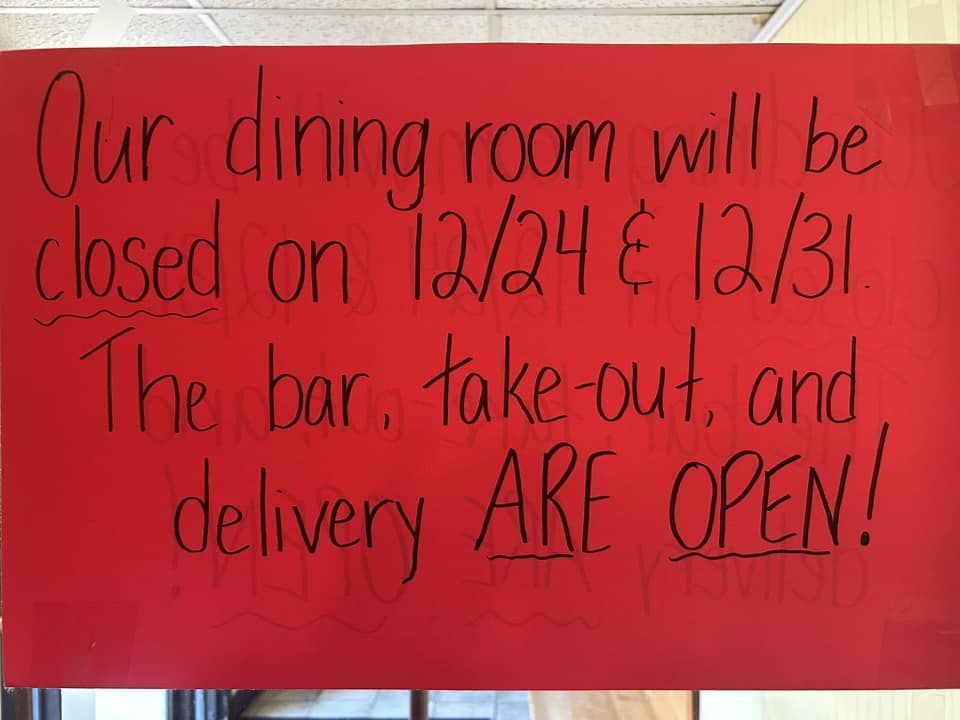 Our dining room will be
closed on 12/24 & 12/31.
The bar, take-out, and
delivery ARE OPEN!